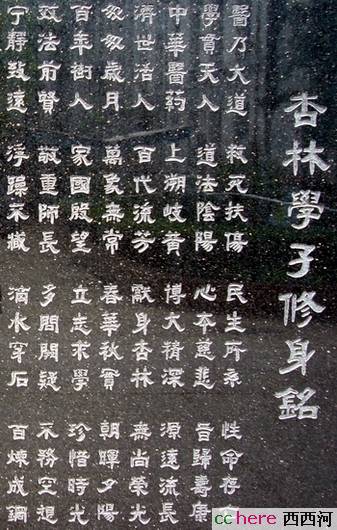 杏林學子修身銘
醫乃大道 救死扶傷 民生所系 性命存
學貫天人 道法陰陽 心本慈悲 皆歸壽康
中華醫药 上溯岐黄 博大精深 源遠流長
濟世活人 百代流芳 獻身杏林 無尚榮光
匆匆歲月 萬象無常 春華秋實 朝暉夕陽
百年樹人 家國殷望 立志求學 珍惜時光
效法前賢 敬重師長 多問闕疑 不務空想
宁靜致遠 浮躁不臧 滴水穿石 百煉成鋼
cchere 西西河